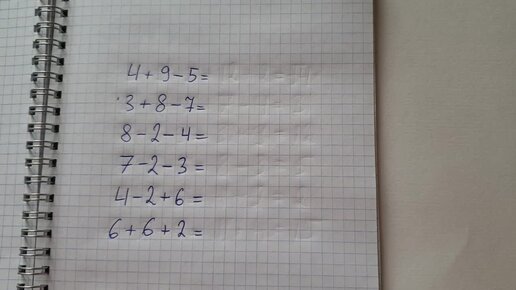 4+9-5=
3+8-7=
8-2-4=
7-2-3=
4-2+6=
6+6+2=